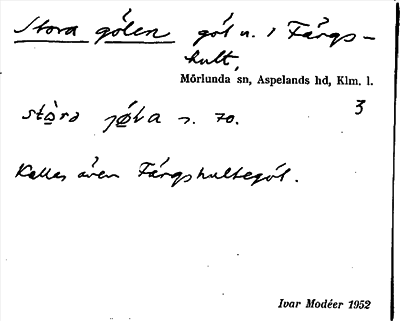 Stora gölen göl n. i Färgs-
hult,
Mörlunda sn, Aspelands hd, Klm. l.
3
s. 70.
Kallas även Färgshultegöl.
Ivar Modéer 1952